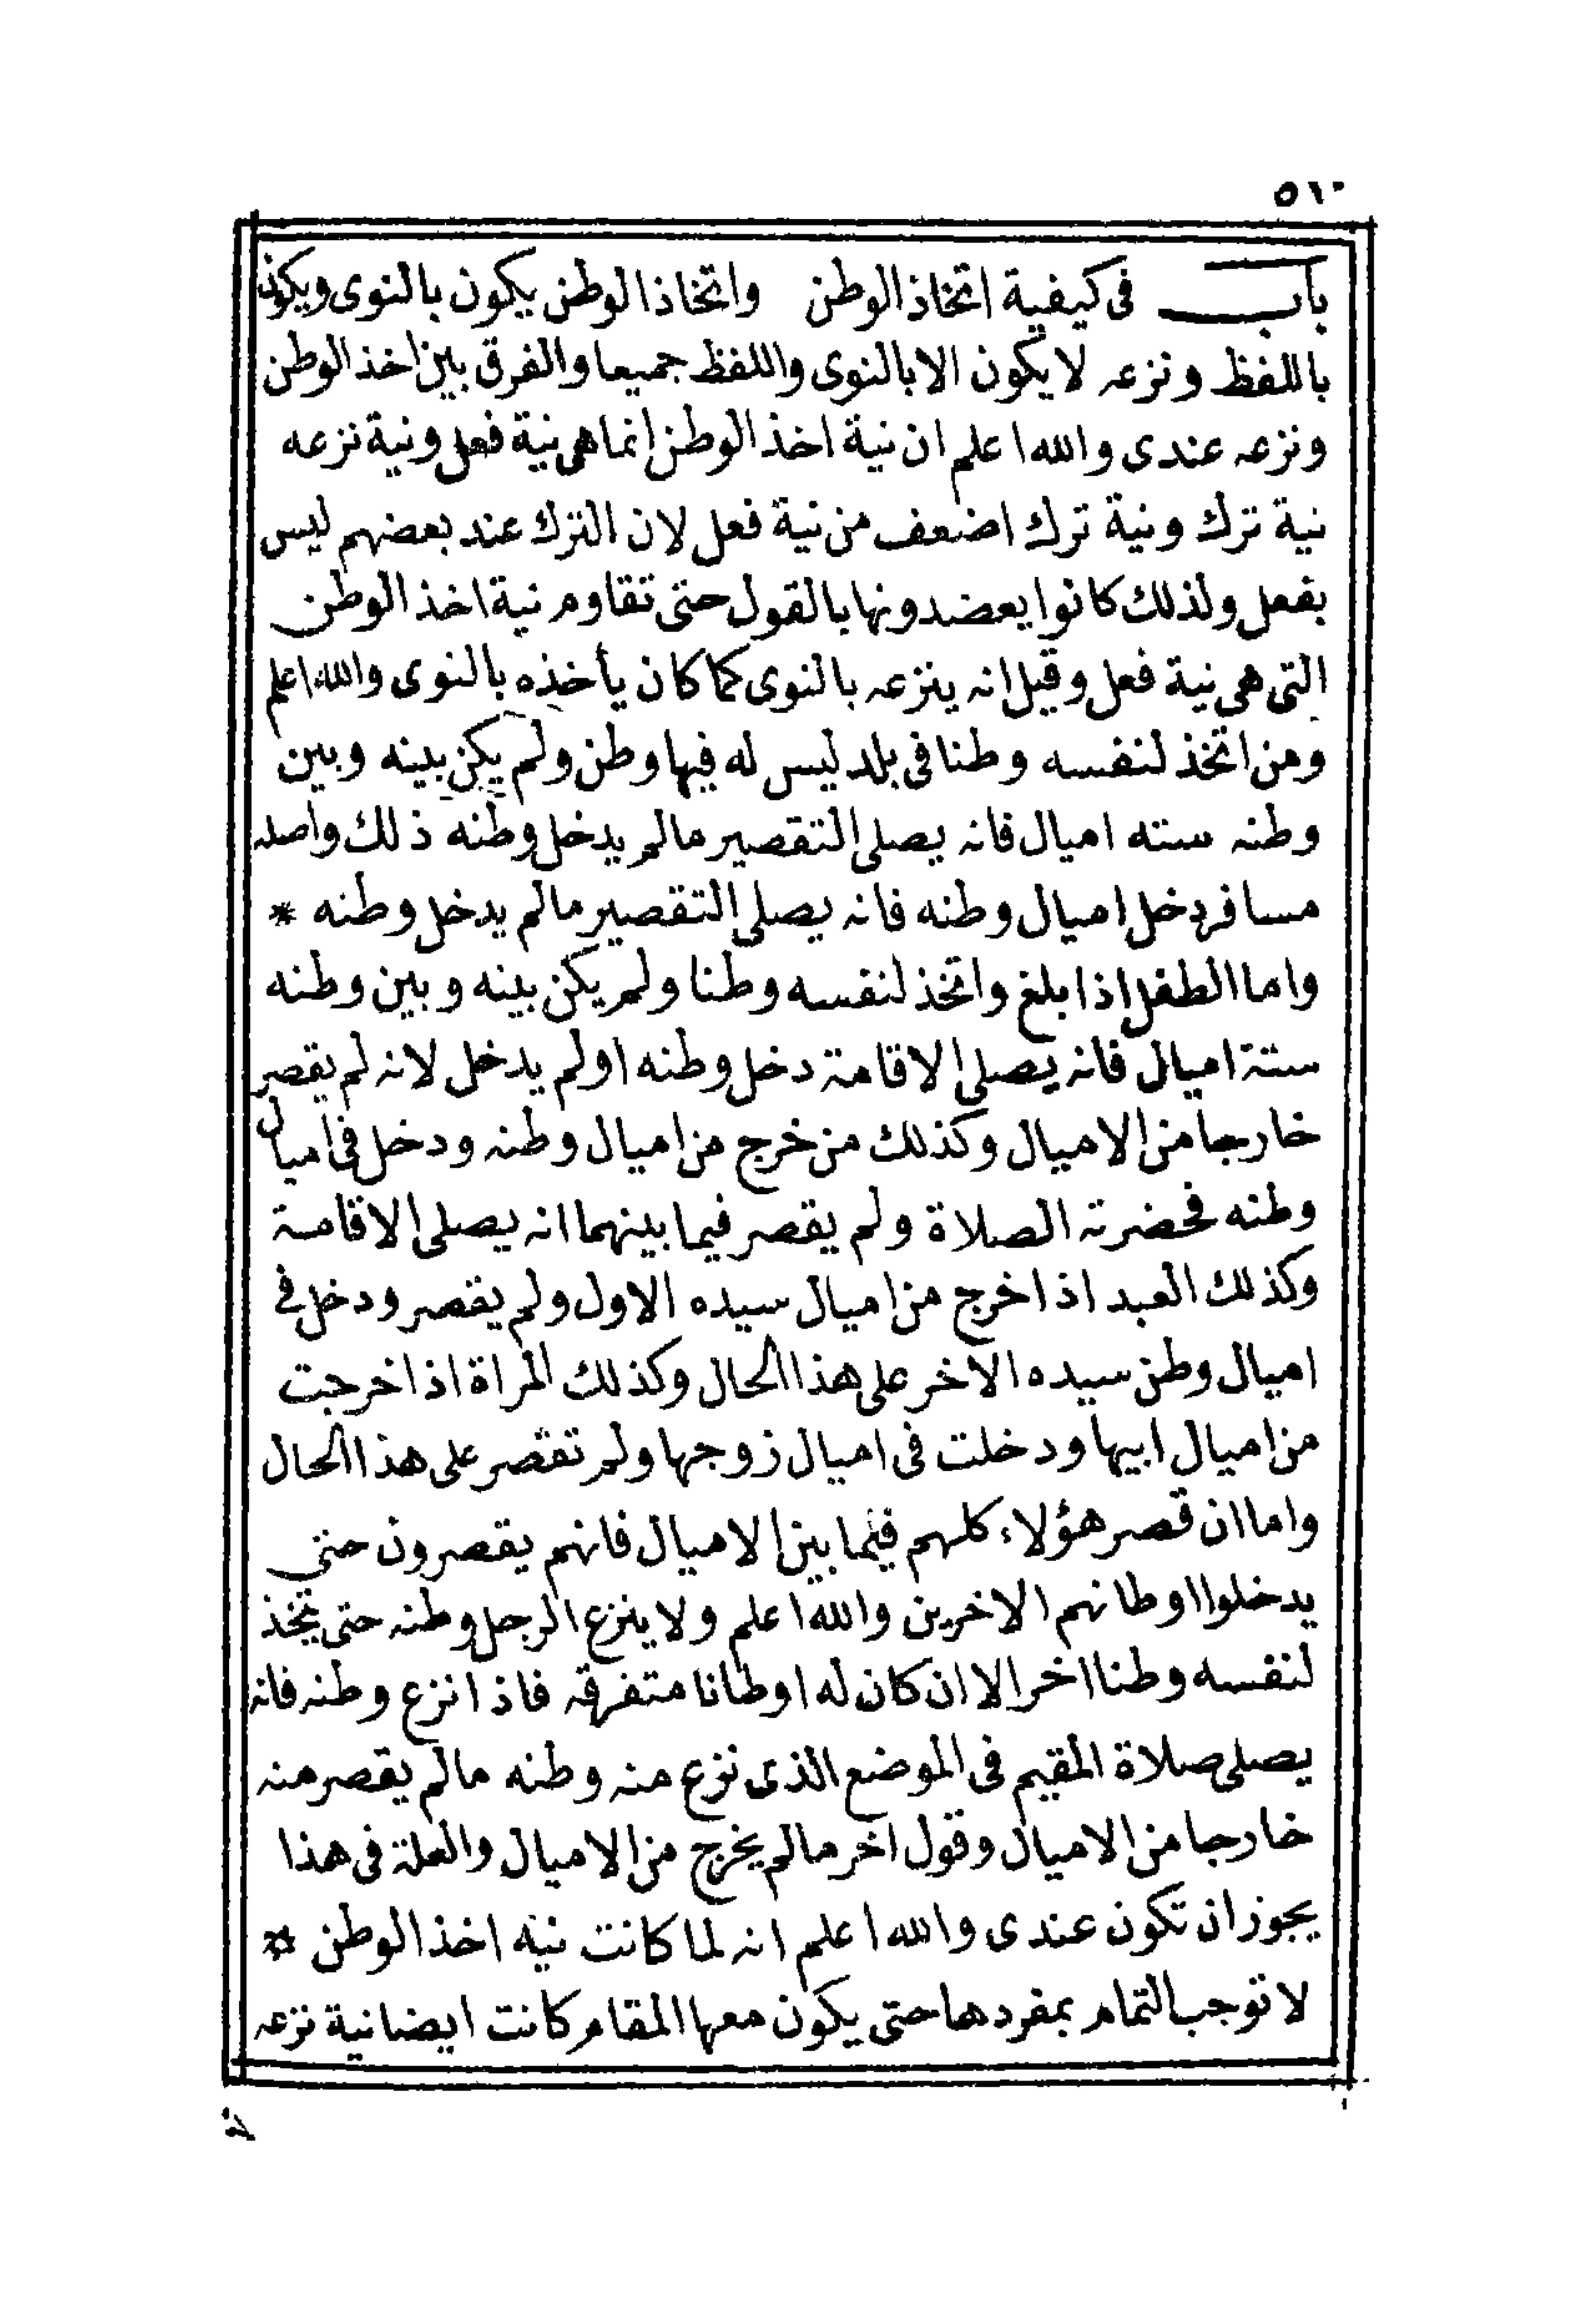 ٥٦٠
باب في كيفية اتخاذ الوطن واتخاذ الوطن يكون بالنوى ويكون
باللفظ ونزعه لا يكون الا بالنوى واللفظ جميعا والفرق بين اخذ الوطن
ونزعه عندى والله اعلم ان نية اخذ الوطن انما هى نية فعل ونية نزعه
نية ترك ونية ترك اضعف من نية فعل لان الترك عند بعضهم ليس
بفعل ولذلك كانوا يعضدونها بالقول حتى تقاوم نية اخذ الوطن
التى هى نية فعل وقيل انه ينزعه بالنوى كما كان يأخذه بالنوى والله اعلم
ومن اتخذ لنفسه وطنا فى بلد ليس له فيها وطن ولم يكن بينه وبين
وطنه سته اميال فانه يصلى التقصير مالم يدخل وطنه ذلك واصله
مسافر دخل اميال وطنه فانه يصلى التقصير مالم يدخل وطنه *
واما الطفل اذا بلغ واتخذ لنفسه وطنا ولم يكن بينه وبين وطنه
ستة اميال فانه يصلى الاقامة دخل وطنه اولم يدخل لانه لم يقصر
خارجا من الاميال وكذلك من خرج من اميال وطنه ودخل فى اميال
وطنه فحضرته الصلاة ولم يقصر فيما بينهما انه يصلى الاقامة
وكذلك العبد اذا خرج من اميال سيده الاول ولم يقصر ودخل فى
اميال وطن سيده الاخر على هذا الحال وكذلك المراة اذا خرجت
من اميال ابيها ودخلت فى اميال زوجها ولم تقصر على هذا الحال
واما ان قصر هؤلاء كلهم فيما بين الاميال فانهم يقصرون حتى
يدخلوا اوطانهم الاخرين والله اعلم ولا ينزع الرجل وطنه حتى يتخذ
لنفسه وطنا اخر الا ان كان له اوطانا متفرقه فاذا نزع وطنه فانه
يصلى صلاة المقيم فى الموضع الذى نزع منه وطنه مالم يقصر منه
خارجا من الاميال وقول اخر مالم يخرج من الاميال والعلة فى هذا
يجوز ان تكون عندى والله اعلم انه لما كانت نيه اخذ الوطن *
لا توجب التمام بمفردها حتى يكون معها المقام كانت ايضا نية نزعه